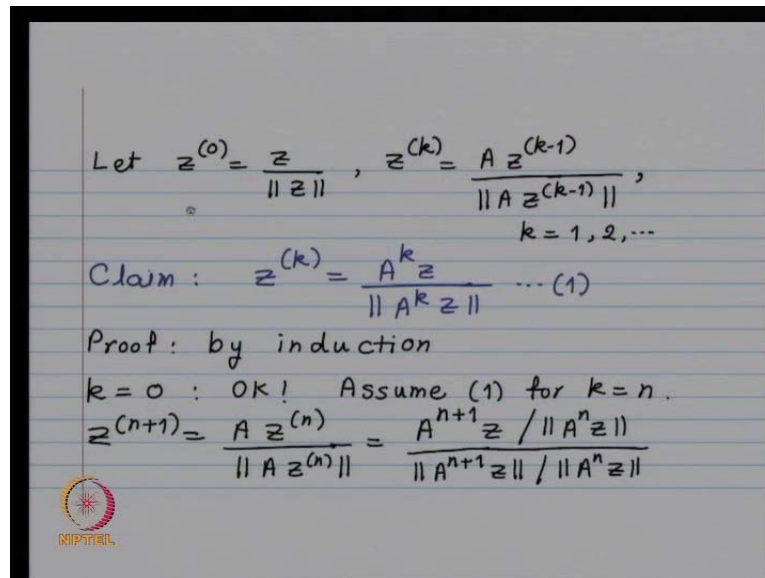 Let z^(0) = z / ||z|| , z^(k) = A z^(k-1) / ||A z^(k-1)|| ,
k = 1, 2, ...
Claim : z^(k) = A^k z / ||A^k z|| ... (1)
Proof : by induction
k = 0 : OK! Assume (1) for k = n.
z^(n+1) = A z^(n) / ||A z^(n)|| = A^(n+1) z / ||A^n z|| / ||A^(n+1) z|| / ||A^n z||
NPTEL